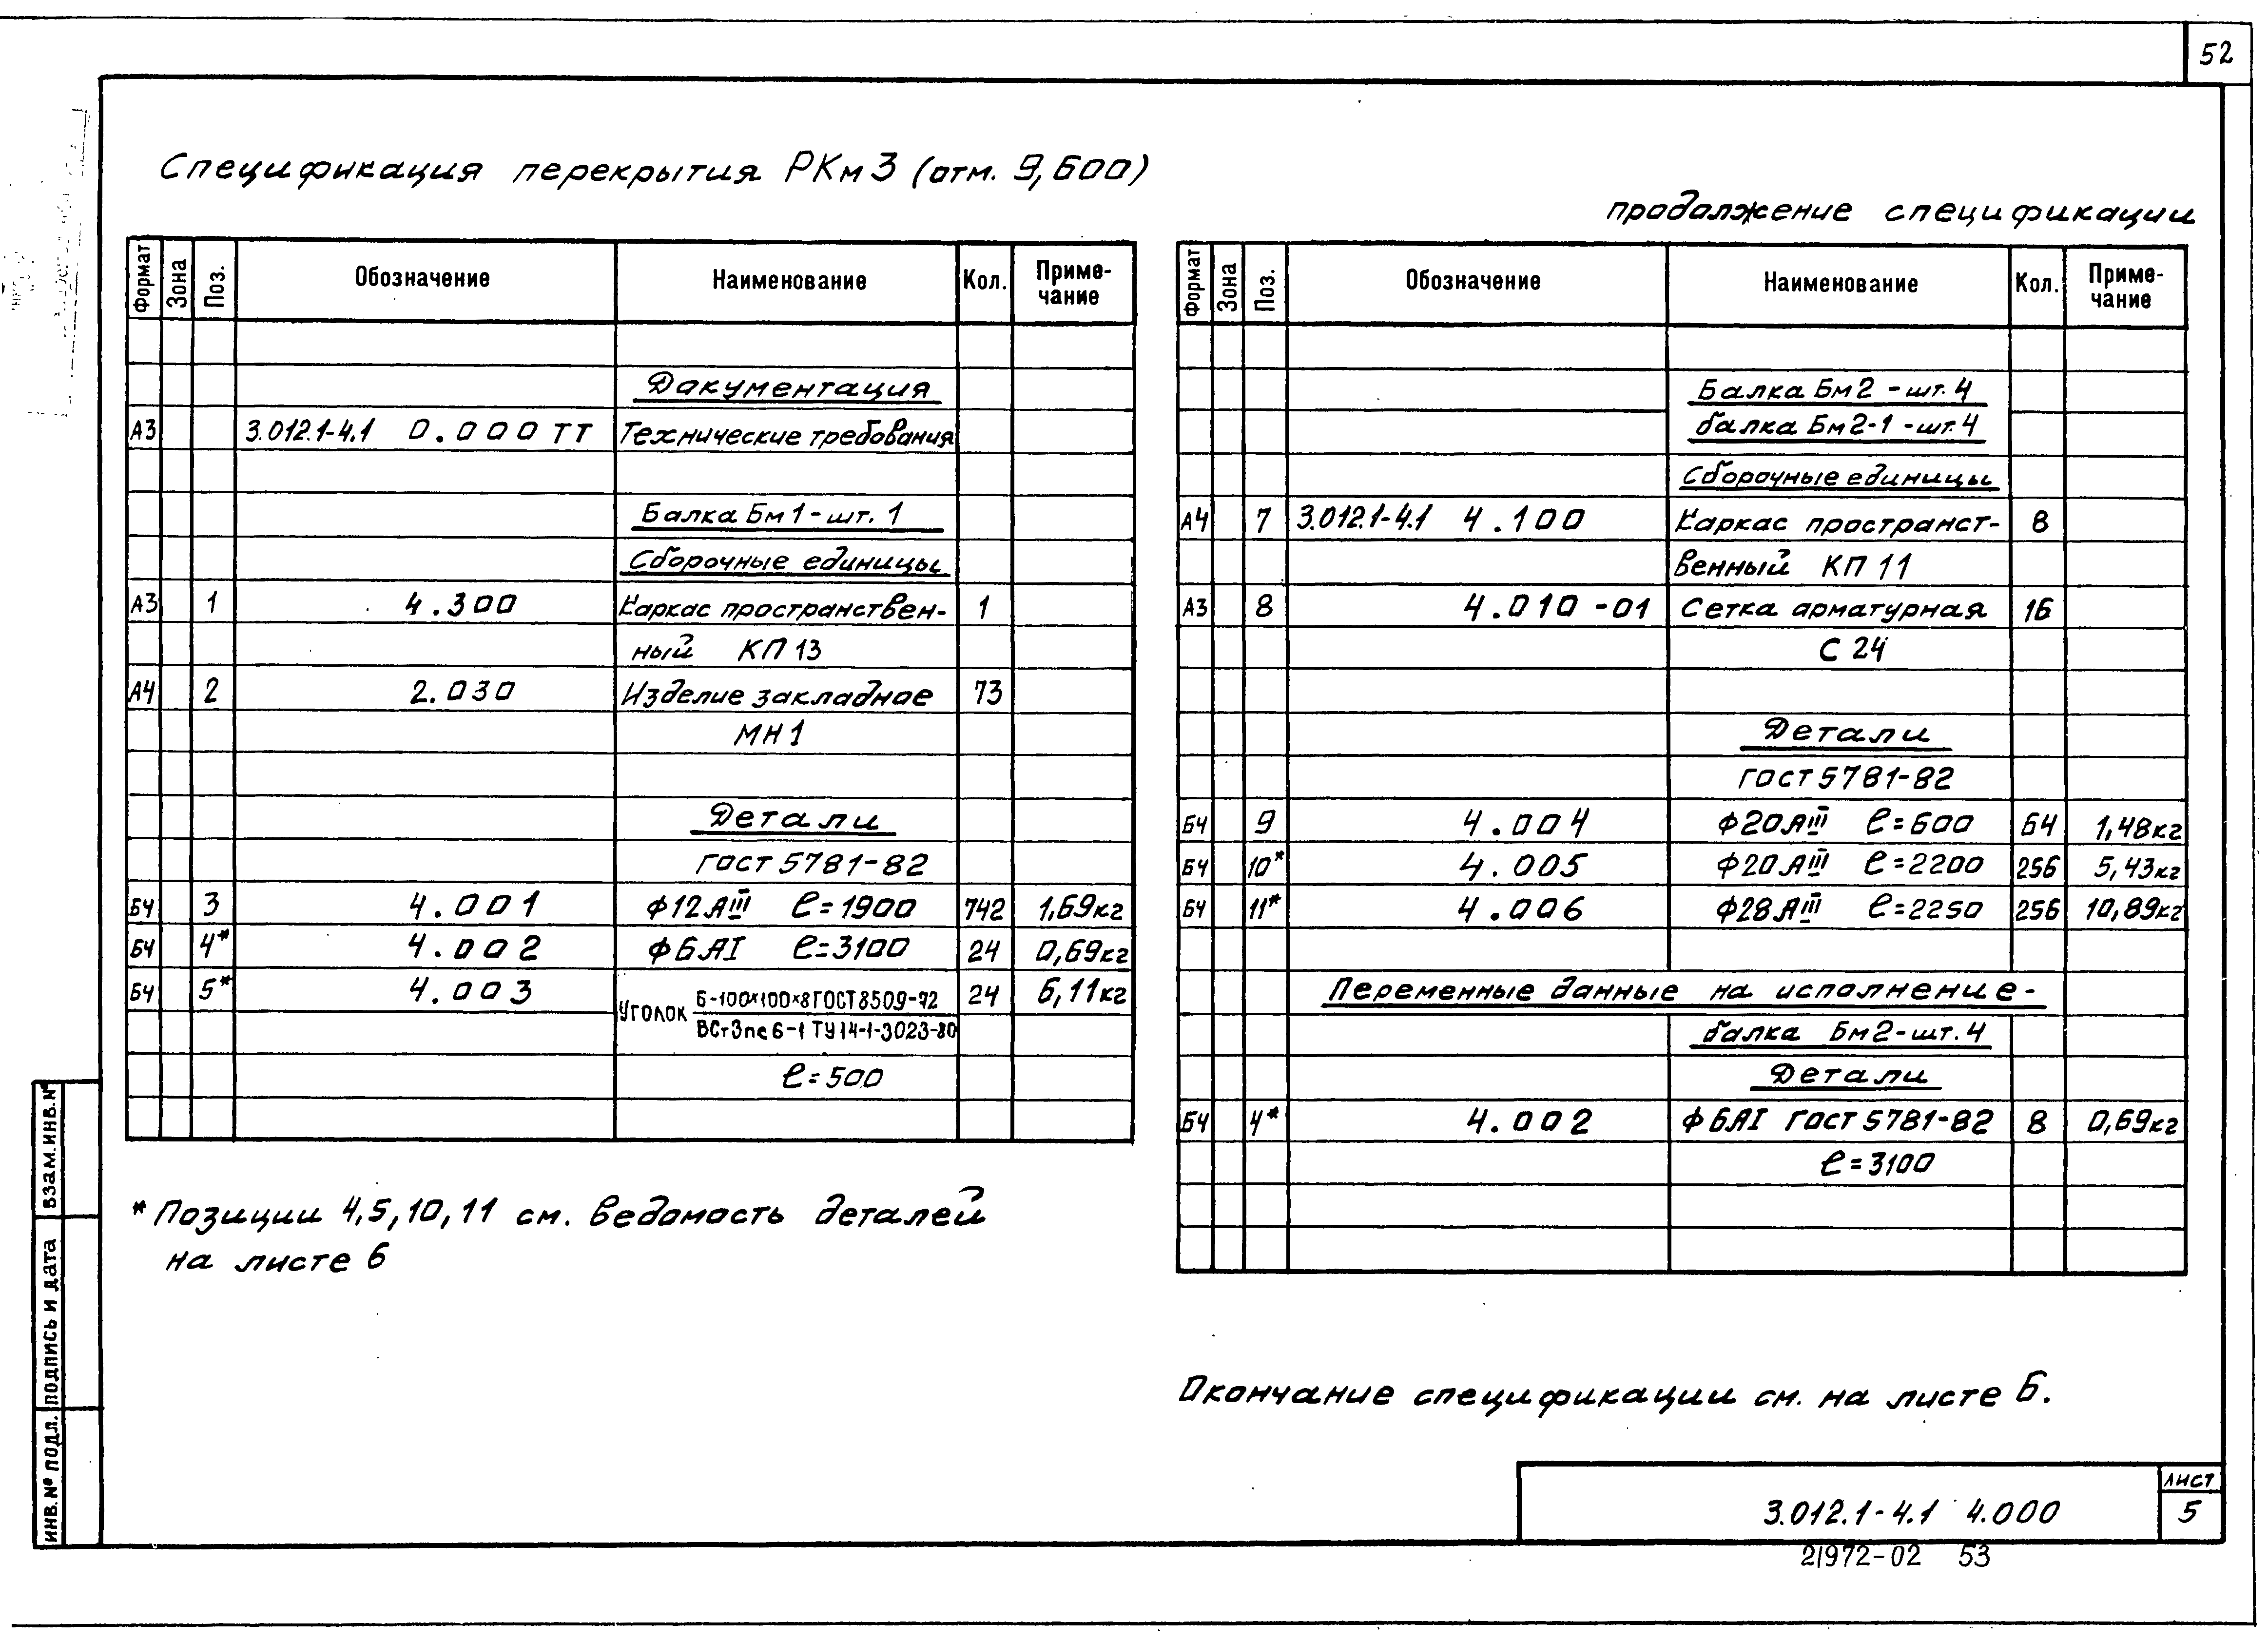 52
Спецификация перекрытия РКм3 (отм. 9,600)
Формат Зона Поз. Обозначение Наименование Кол. Приме-
чание
Документация
А3 3.012.1-4.1 0.000ТТ Технические требования
Балка Бм1-шт. 1
Сборочные единицы
А3 1 4.300 Каркас пространствен- 1
ный КП13
А4 2 2.030 Изделие закладное 73
МН1
Детали
ГОСТ 5781-82
БЧ 3 4.001 Ф12АIII ℓ=1900 742 1,69кг
БЧ 4* 4.002 Ф6АI ℓ=3100 24 0,69кг
БЧ 5* 4.003 Уголок Б-100×100×8 ГОСТ 8509-72 24 6,11кг
ВСт3пс6-1 ТУ14-1-3023-80
ℓ=500
* Позиции 4,5,10,11 см. ведомость деталей
на листе 6
продолжение спецификации
Формат Зона Поз. Обозначение Наименование Кол. Приме-
чание
Балка Бм2 -шт. 4
балка Бм2-1 -шт. 4
Сборочные единицы
А4 7 3.012.1-4.1 4.100 Каркас пространст- 8
венный КП11
А3 8 4.010-01 Сетка арматурная 16
С24
Детали
ГОСТ 5781-82
БЧ 9 4.004 Ф20АIII ℓ=600 64 1,48кг
БЧ 10* 4.005 Ф20АIII ℓ=2200 256 5,43кг
БЧ 11* 4.006 Ф28АIII ℓ=2250 256 10,89кг
Переменные данные на исполнение-
балка Бм2-шт. 4
Детали
БЧ 4* 4.002 Ф6АI ГОСТ 5781-82 8 0,69кг
ℓ=3100
Окончание спецификации см. на листе 6.
ИНВ.№ ПОДЛ. ПОДПИСЬ И ДАТА ВЗАМ.ИНВ.№
3.012.1-4.1 4.000
ЛИСТ
5
21972-02 53